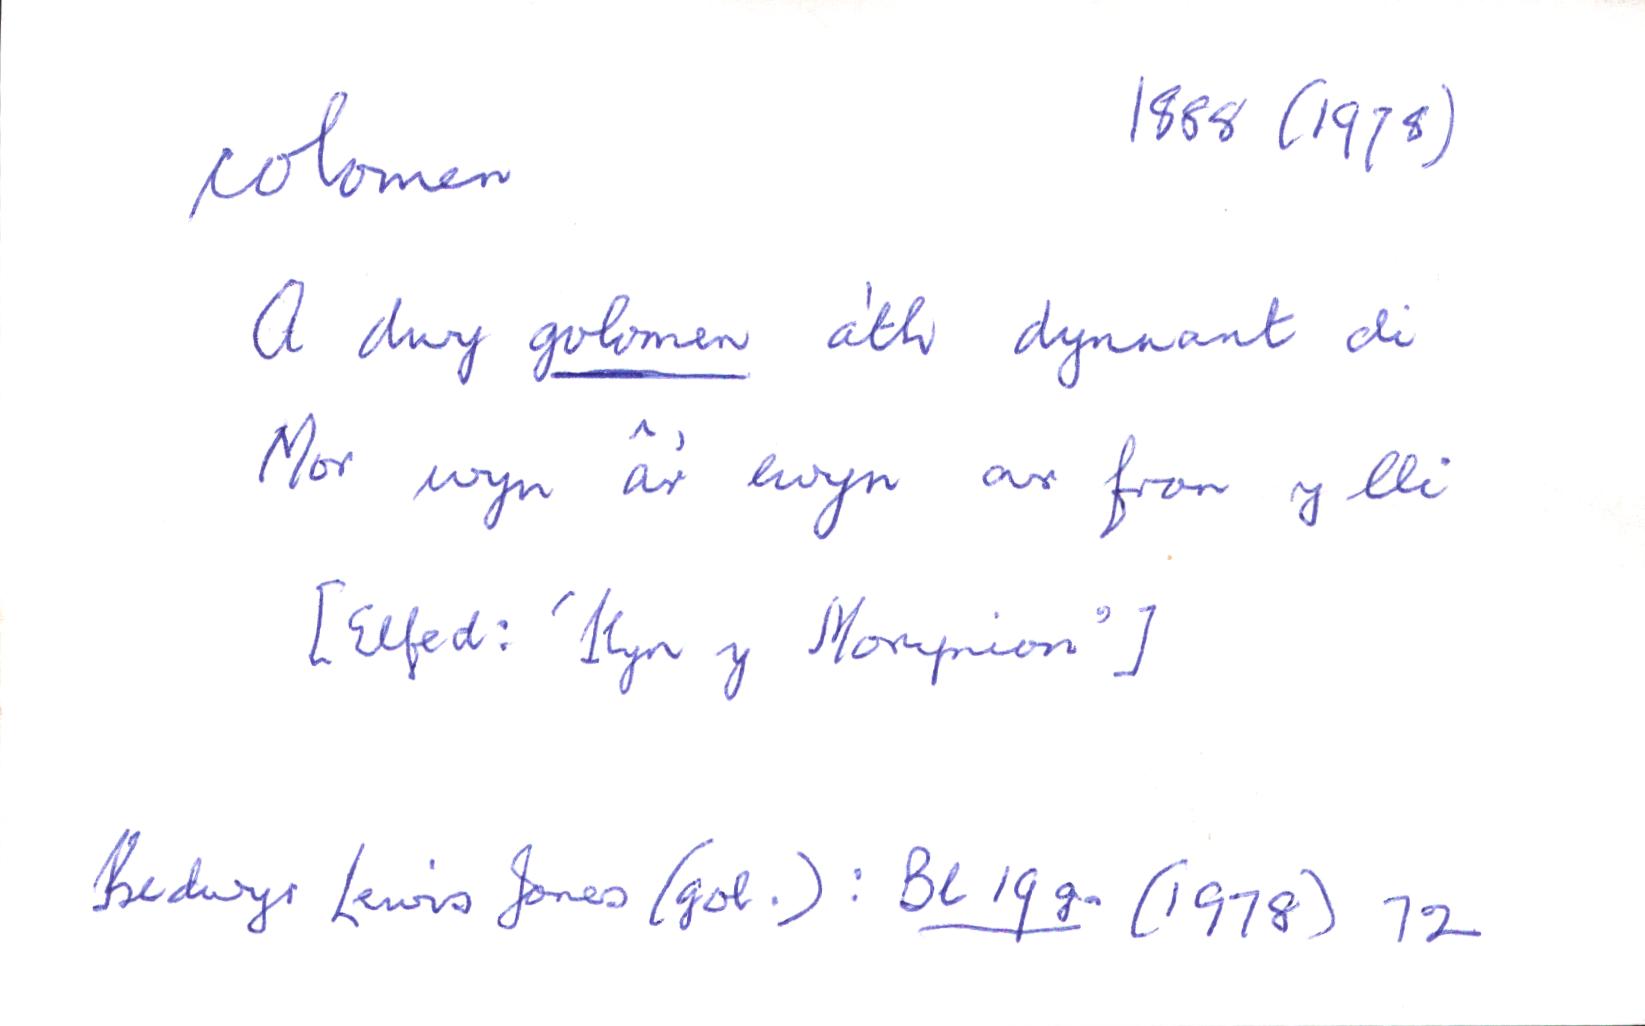 colomen
1888 (1978)
A dwy golomen a'th dynnant di
Mor wyn â'r ewyn ar fron y lli
[Elfed: 'Llyn y Morynion']
Bedwyr Lewis Jones (gol.): Bl 19 g. (1978) 72